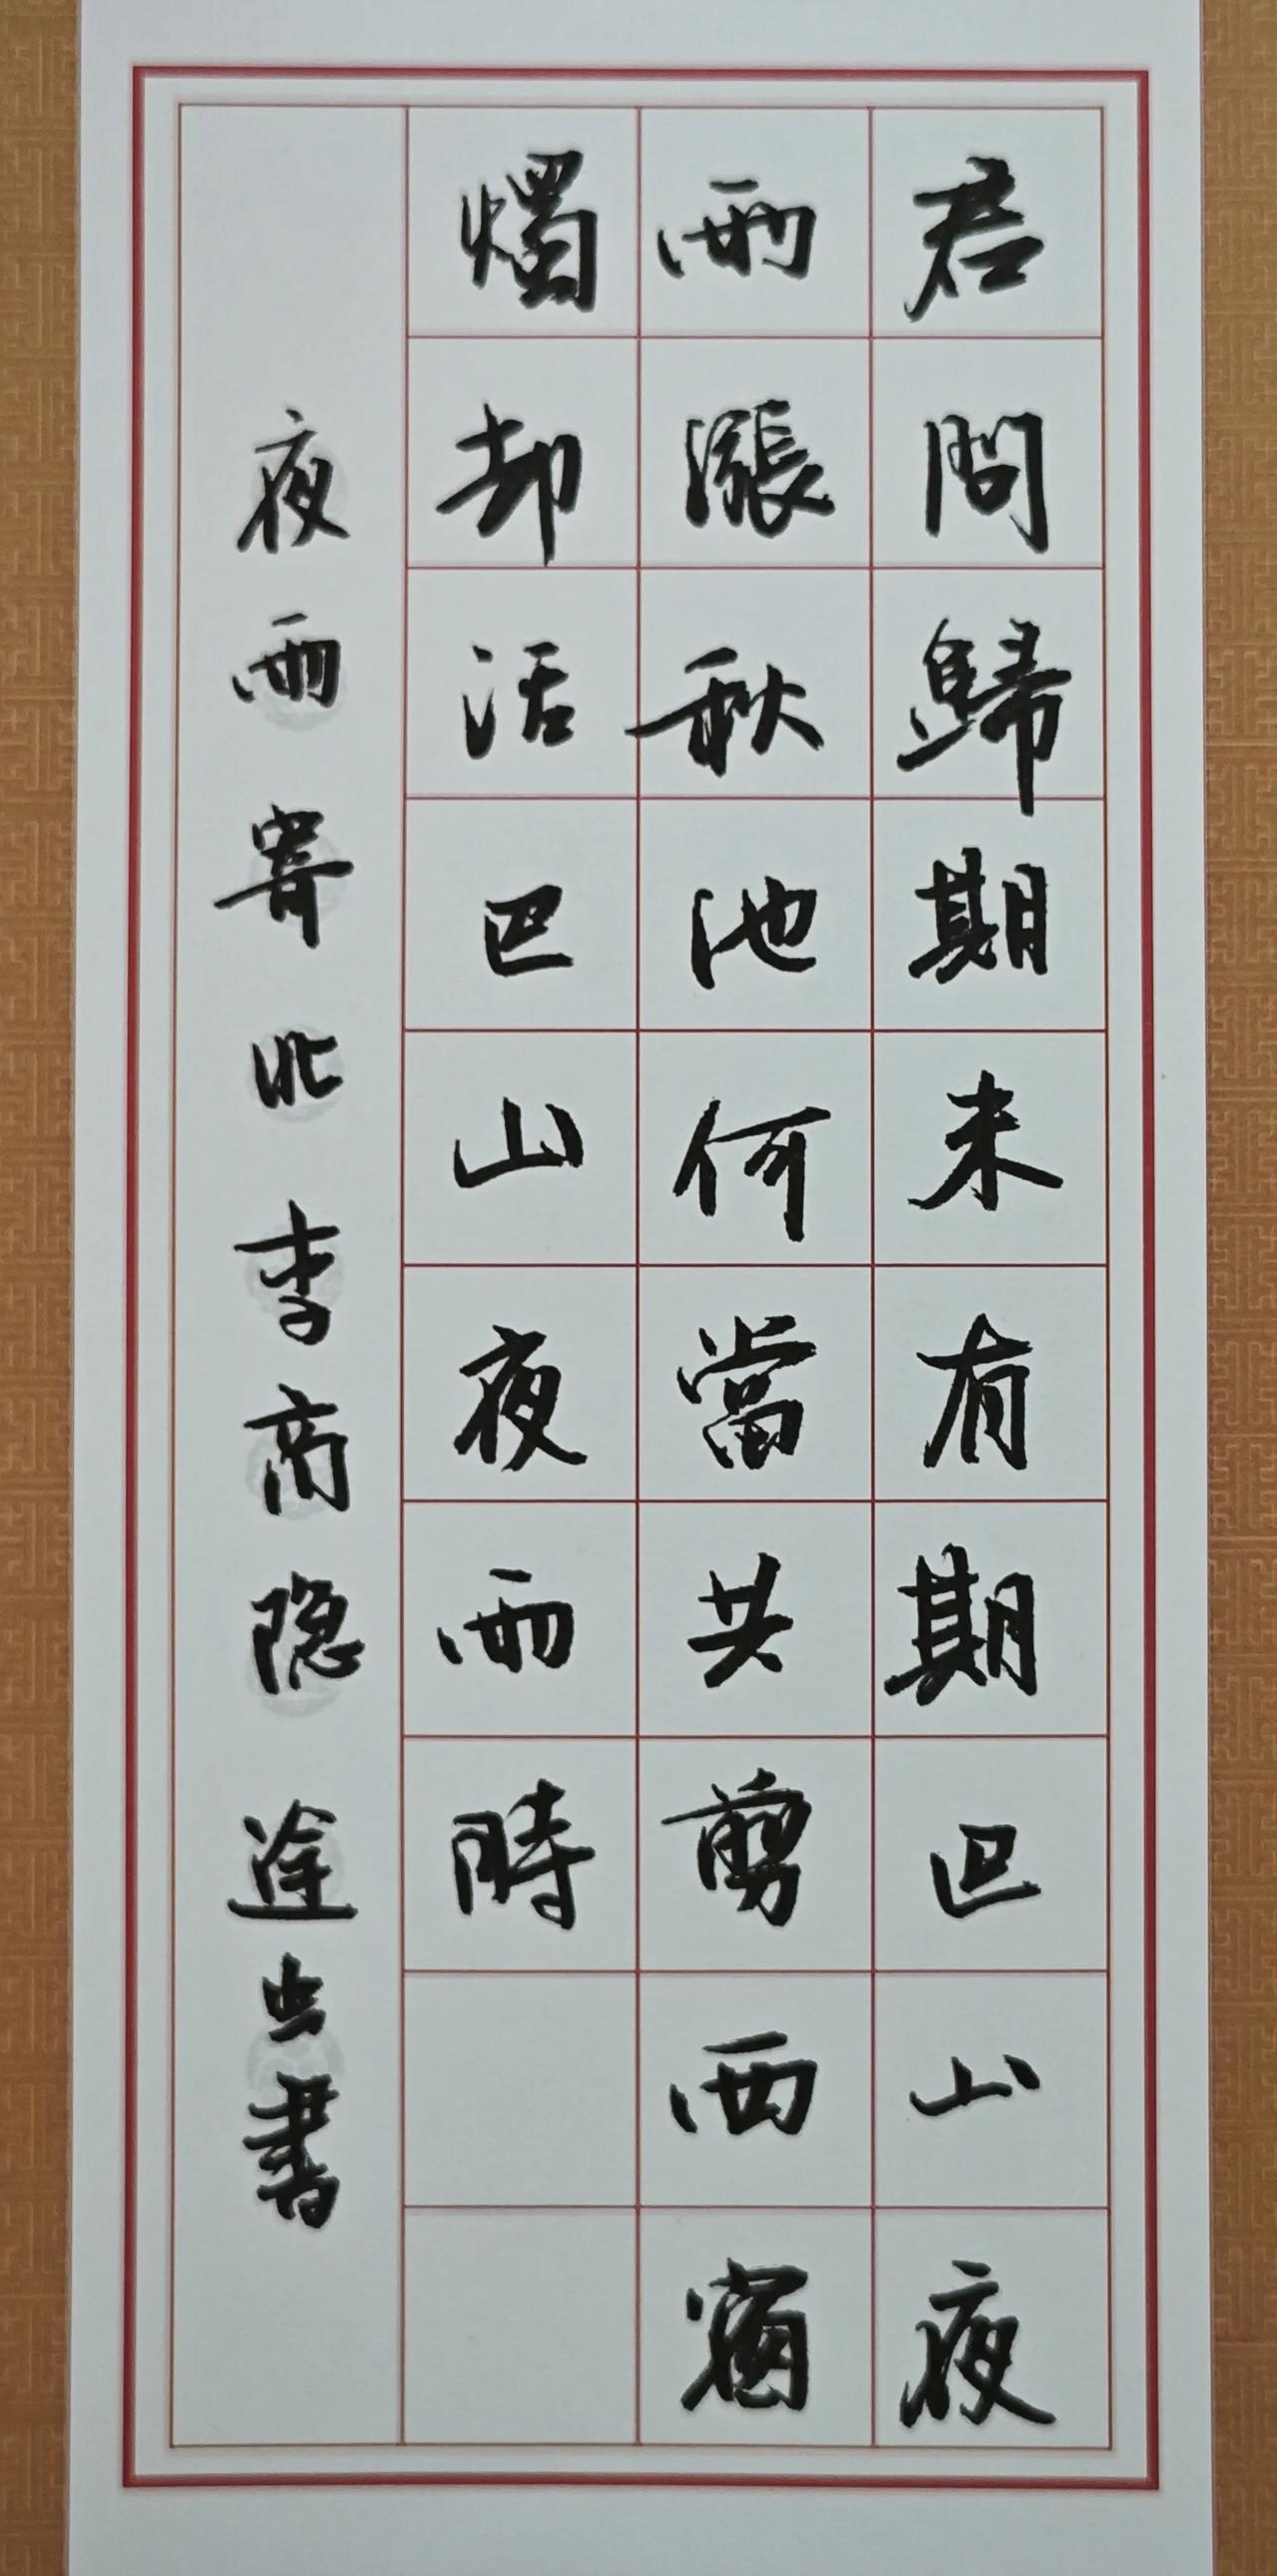 君問歸期未有期巴山夜
雨漲秋池何當共剪西窗
燭却話巴山夜雨時
夜雨寄北 李商隐 途虫書